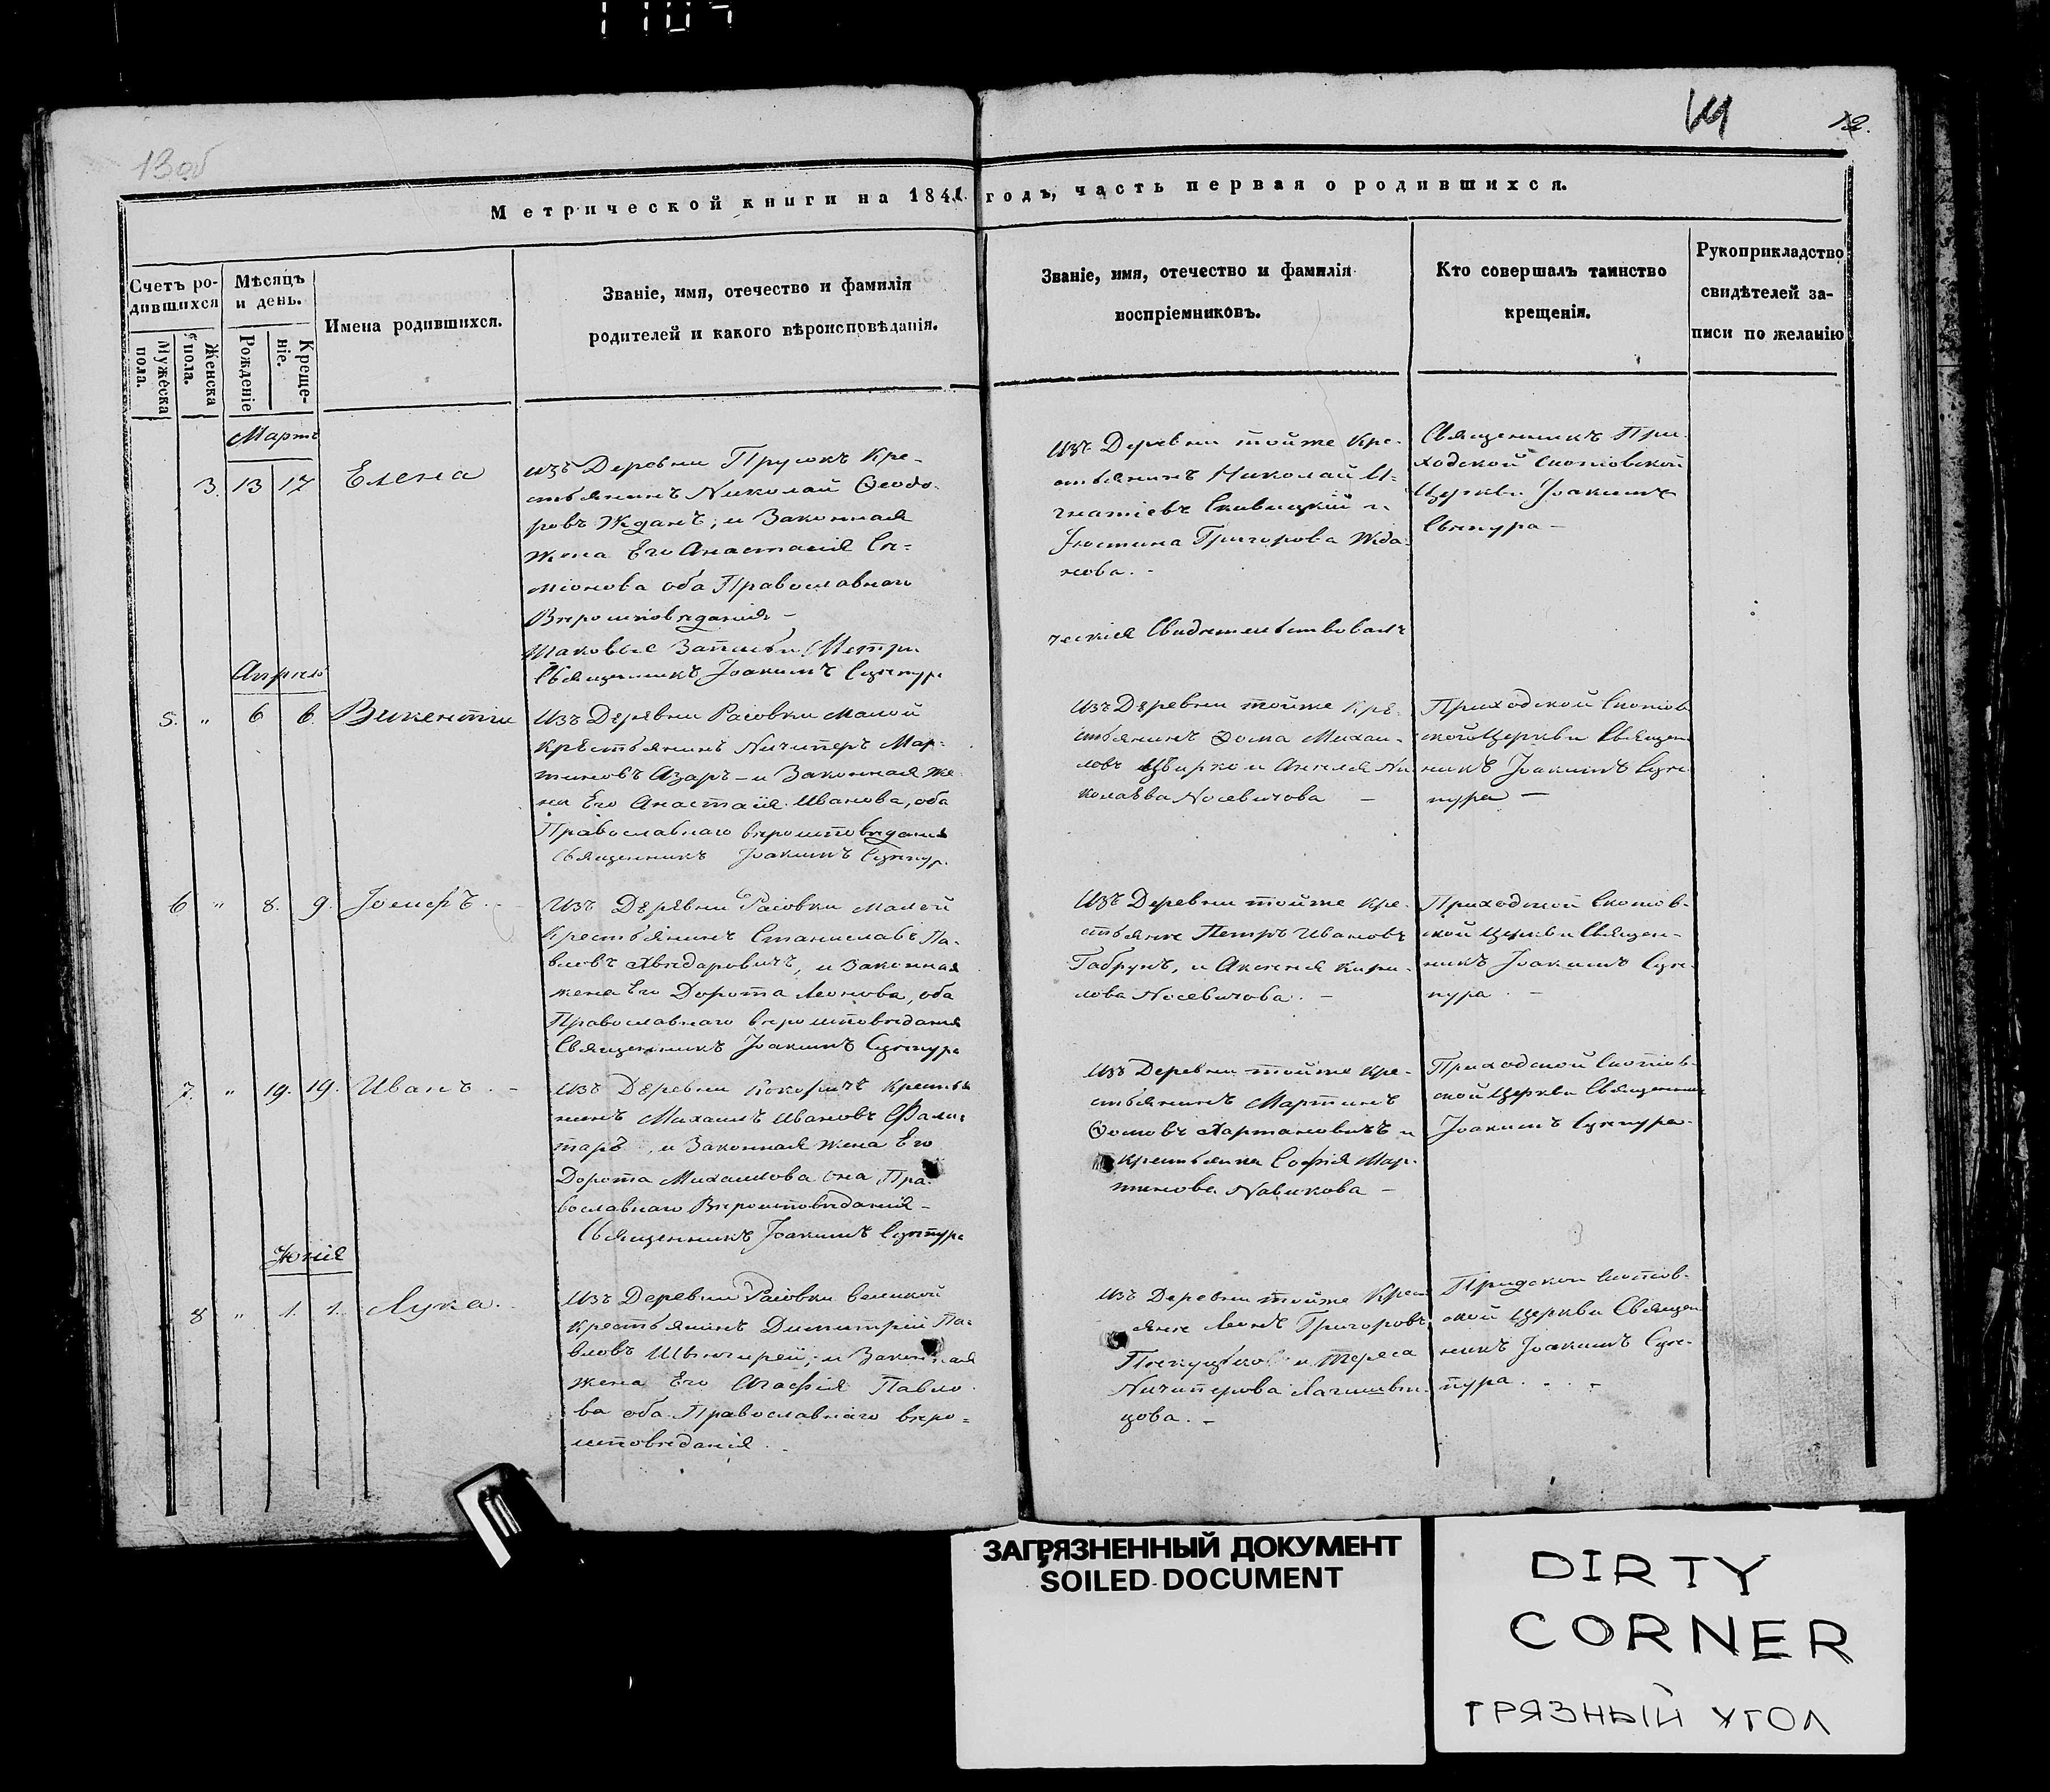 13 об
12.
Метрической книги на 1841. годъ, часть первая о родившихся.
Счетъ ро-
дившихся
Мужеска
пола.
Женска
пола.
Мѣсяцъ
и день.
Рожденіе
Креще-
ніе.
Имена родившихся.
Званіе, имя, отечество и фамилія
родителей и какого вѣроисповѣданія.
Званіе, имя, отечество и фамилія
воспріемниковъ.
Кто совершалъ таинство
крещенія.
Рукоприкладство
свидѣтелей за-
писи по желанію
Мартъ
3. 13 17 Елена
Изъ Деревни Прусокъ Кре-
стьянинъ Николай Ѳеодо-
ровъ Жданъ, и Законная
жена Его Анастасія Си-
міонова оба Православнаго
Вѣроисповѣданія -
Изъ Деревни тойже Кре-
стьянинъ Николай И-
гнатіевъ Скивицкій и
Іюстина Григорова Жда-
нова. -
Священникъ При-
ходской
Церкви Іоакимъ
Таковые Записи Метри
ческія Свидѣтельствовалъ
Священникъ Іоакимъ
Апрель
5. " 6 6. Викентій
Изъ Деревни Расовки Малой
Крестьянинъ Ничиперъ Мар-
тиновъ Азаръ - и Законная же
на Его Анастасія Иванова, оба
Православнаго вѣроисповѣданія
Священникъ Іоакимъ
Изъ Деревни тойже Кре-
стьянинъ Ѳома Михаи-
ловъ Цвирко и Ангеля Ни
колаева Носевичова -
Приходской
ской Церкви Священ
никъ Іоакимъ
6 " 8. 9. Іосифъ. -
Изъ Деревни Расовки малой
Крестьянинъ Станиславъ Па-
вловъ Хведаровичъ, и Законная
жена Его Дорота Леонова, оба
Православнаго вѣроисповѣданія
Священникъ Іоакимъ
Изъ Деревни тойже Кре-
стьяне Петръ Ивановъ
Габрукъ, и Аксенія Кири-
лова Носевичова. -
Приходской
ской Церкви Священ-
никъ Іоакимъ
7. " 19. 19. Иванъ. -
Изъ Деревни Крестья
нинъ Михаилъ Ивановъ
, и Законная жена Его
Дорота Михаилова она Пра-
вославнаго Вѣроисповѣданія -
Священникъ Іоакимъ
Изъ Деревни тойже Кре-
стьянинъ Мартинъ
Ѳомовъ Хартановичъ и
Крестьянка Софія Мар-
тинова Новикова -
Приходской
ской Церкви Священникъ
Іоакимъ
Іюнія
8 " 1. 1. Лука.
Изъ Деревни Расовки Великой
Крестьянинъ Димитрій Па-
вловъ и Законная
жена Его Агафія Павло-
ва оба Православнаго вѣро-
исповѣданія. -
Изъ Деревни тойже Крест
яне Леонъ Григоровъ
и Тереса
Ничиперова
цова. -
ской Церкви Священ
никъ Іоакимъ
ЗАГРЯЗНЕННЫЙ ДОКУМЕНТ
SOILED DOCUMENT
DIRTY
CORNER
ГРЯЗНЫЙ УГОЛ